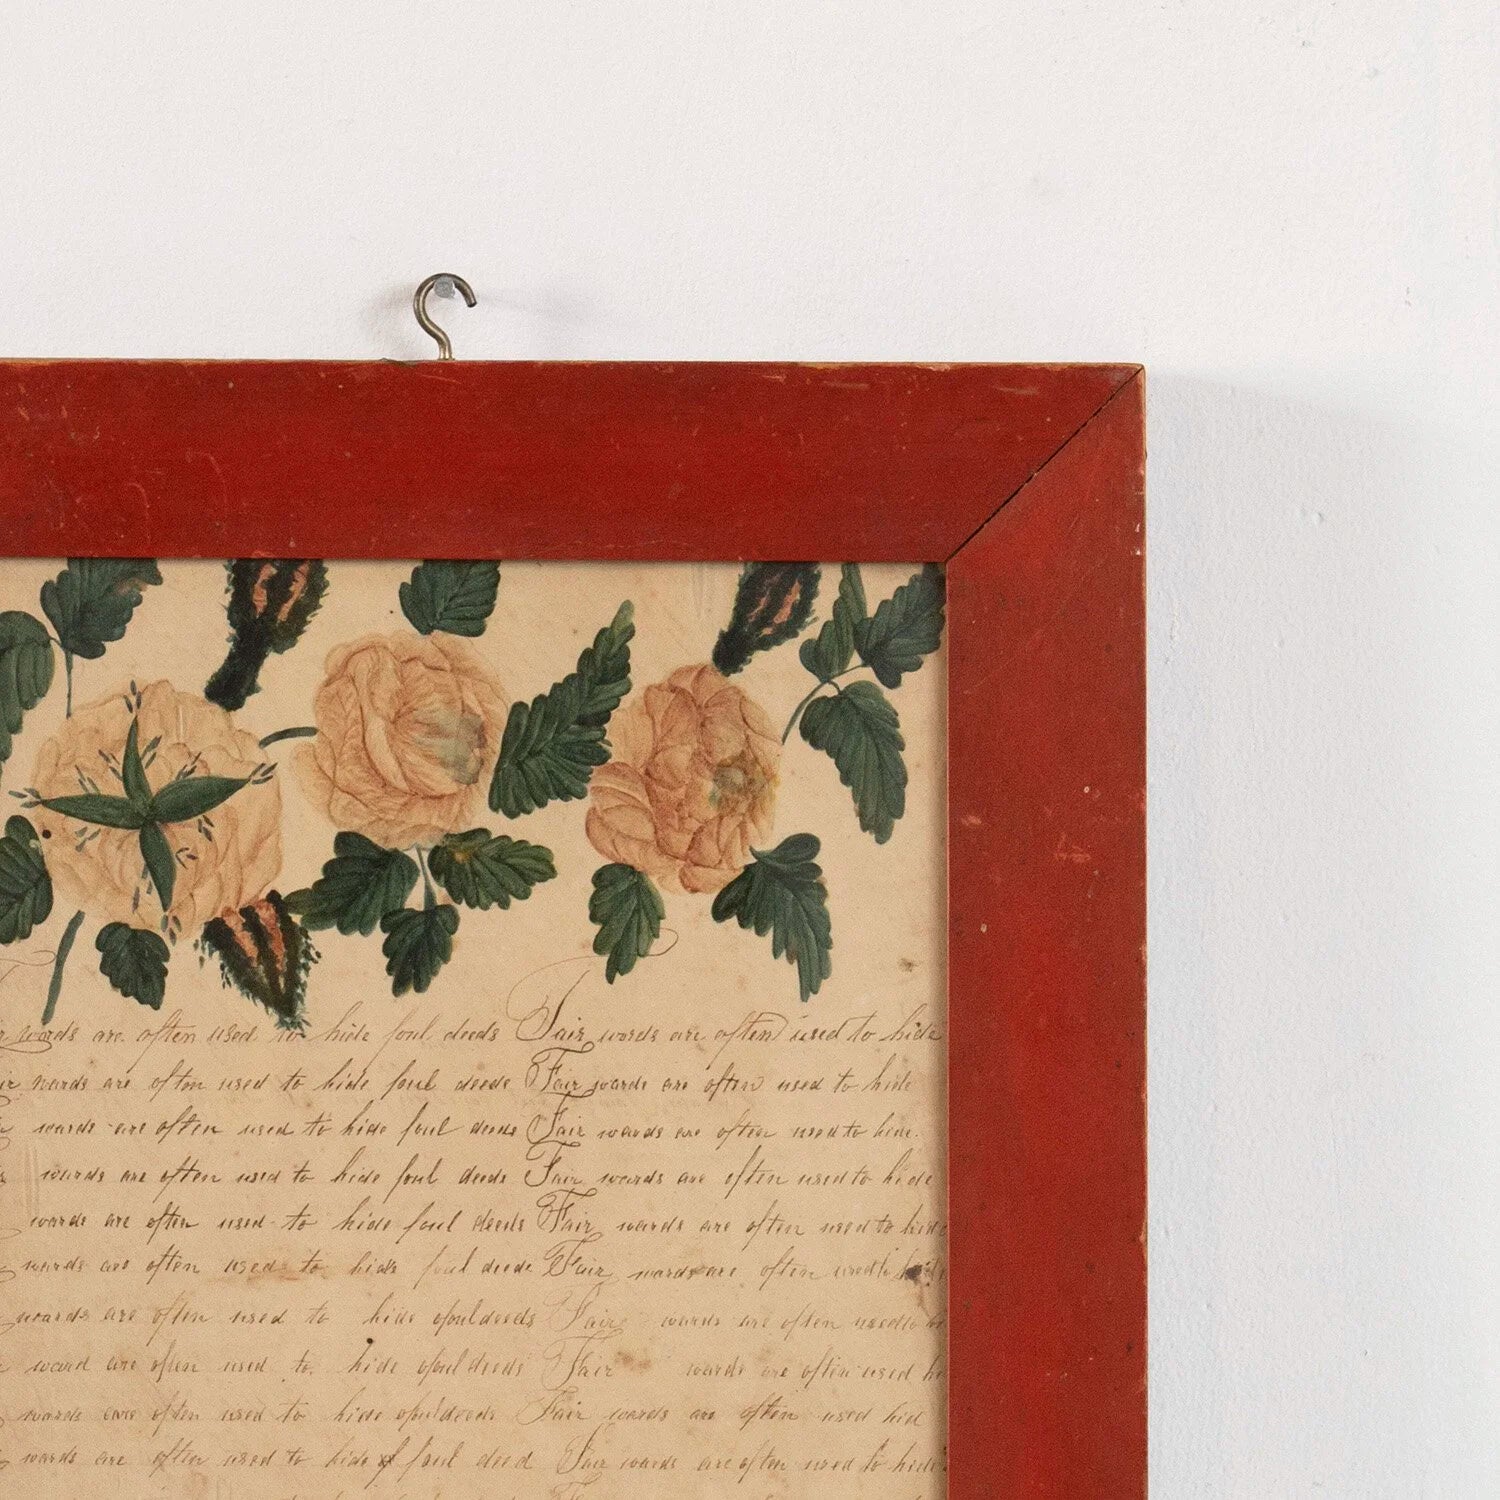 words are often used to hide foul deeds Fair words are often used to hide
words are often used to hide foul deeds Fair words are often used to hide
words are often used to hide foul deeds Fair words are often used to hide
words are often used to hide foul deeds Fair words are often used to hide
words are often used to hide foul deeds Fair words are often used to hide
words are often used to hide foul deeds Fair words are often used to
words are often used to hide foul deeds Fair words are often used to
word are often used to hide foul deeds Fair words are often used
words are often used to hide foul deeds Fair words are often used hid
words are often used to hide of foul deed Fair words are often used to hide